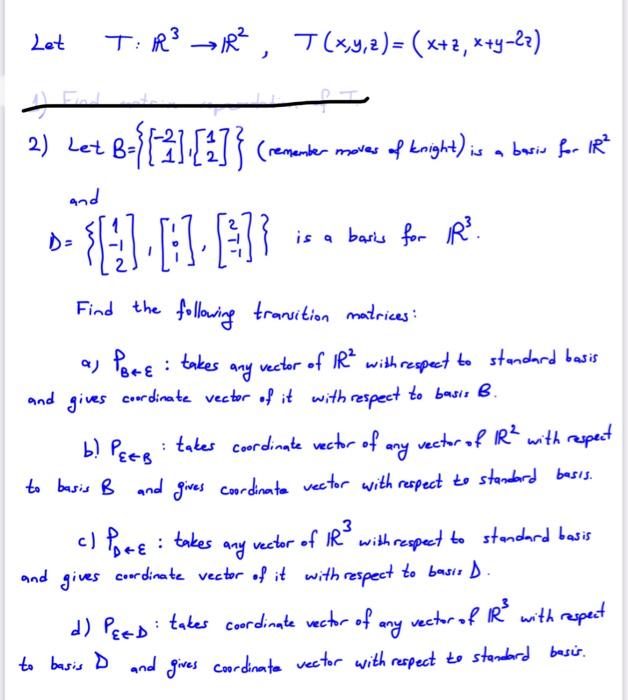 Let T: ℝ³ → ℝ², T(x,y,z) = (x+z, x+y-2z)
1) Find matrix representation of T
2) Let B = {[-2 1], [1 2]} (remember moves of knight) is a basis for ℝ²
and
D = {[1 -1 2], [1 0 1], [2 -1 -1]} is a basis for ℝ³.
Find the following transition matrices:
a) P_{B←ε} : takes any vector of ℝ² with respect to standard basis
and gives coordinate vector of it with respect to basis B.
b) P_{ε←B} : takes coordinate vector of any vector of ℝ² with respect
to basis B and gives coordinate vector with respect to standard basis.
c) P_{D←ε} : takes any vector of ℝ³ with respect to standard basis
and gives coordinate vector of it with respect to basis D.
d) P_{ε←D} : takes coordinate vector of any vector of ℝ³ with respect
to basis D and gives coordinate vector with respect to standard basis.